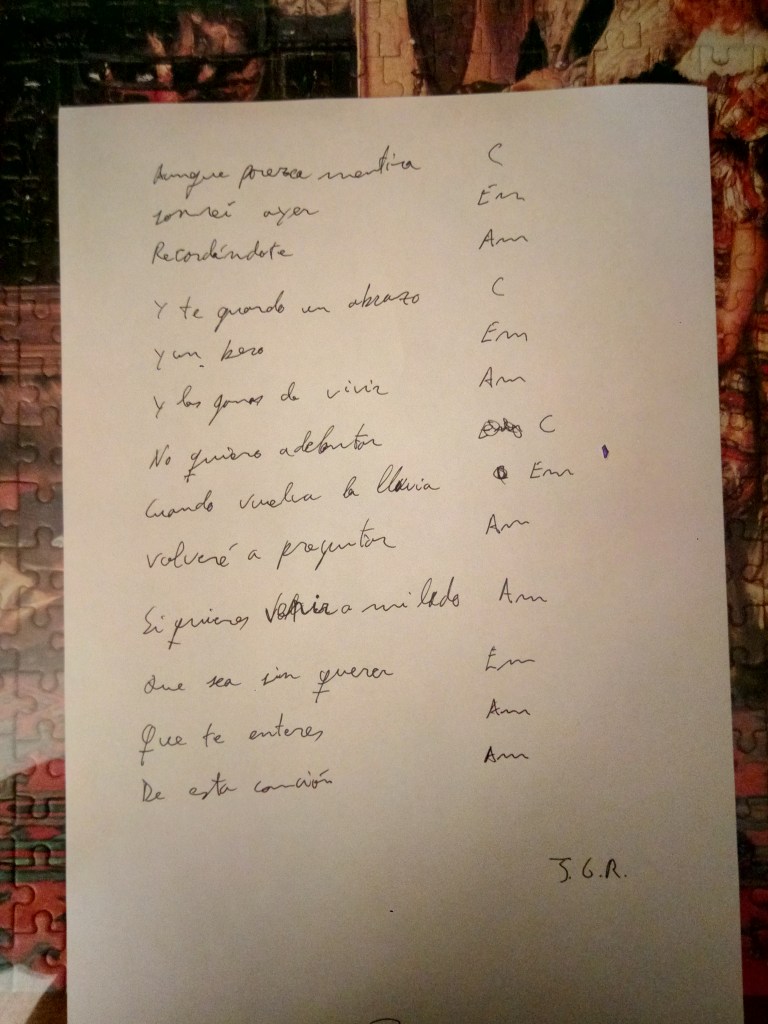 Aunque parezca mentira C
sonreí ayer Em
Recordándote Am
Y te guardo un abrazo C
Y un beso Em
Y las ganas de vivir Am
No quiero adelantar C
Cuando vuelva la lluvia Em
volveré a preguntar Am
Si quieres venir a mi lado Am
Que sea sin querer Em
Que te enteres Am
De esta canción Am
J.G.R.